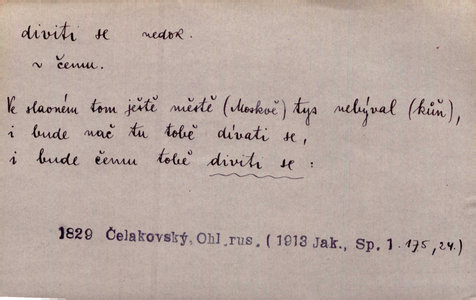 diviti se nedok.
v čemu.
Ve slavném tom ještě městě (Moskvě) tys nebýval (kůň),
i bude nač tu tobě dívati se,
i bude čemu tobě diviti se :
1829 Čelakovský, Ohl. rus. ( 1913 Jak., Sp. 1. 175, 24.)